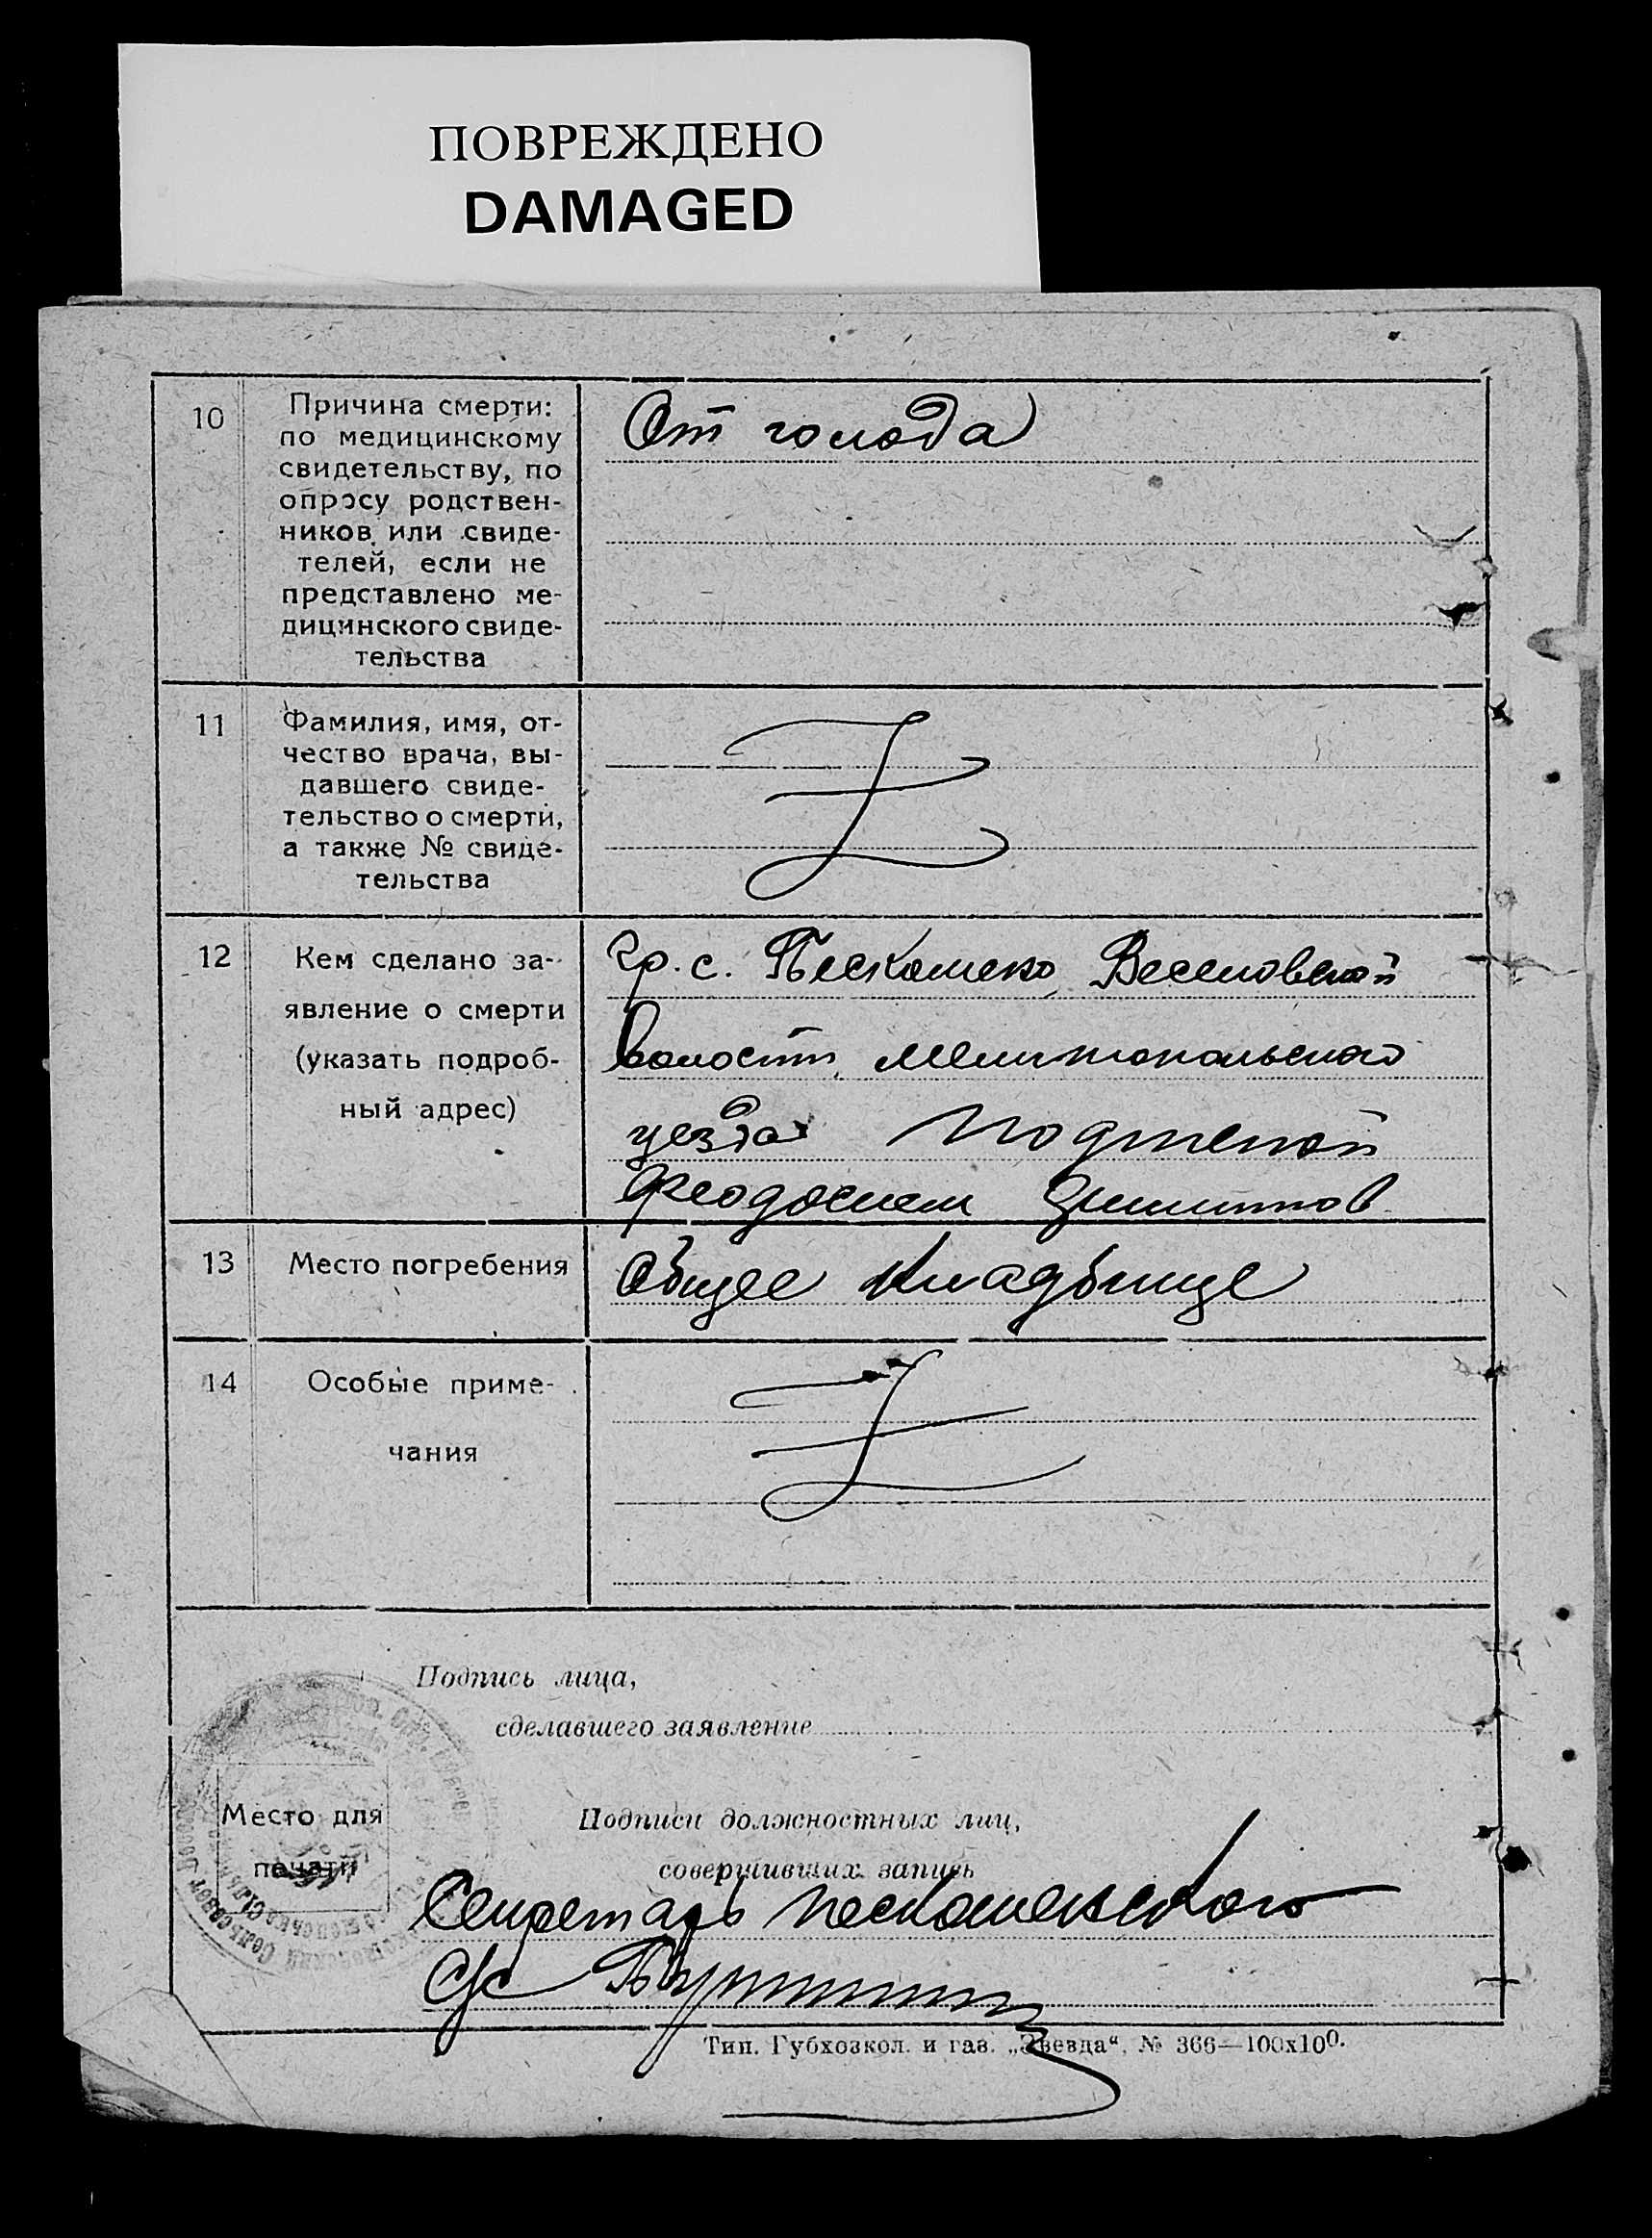 ПОВРЕЖДЕНО
DAMAGED
10
Причина смерти:
по медицинскому
свидетельству, по
опросу родствен-
ников или свиде-
телей, если не
представлено ме-
дицинского свиде-
тельства
От голода
11
Фамилия, имя, от-
чество врача, вы-
давшего свиде-
тельство о смерти,
а также № свиде-
тельства
12
Кем сделано за-
явление о смерти
(указать подроб-
ный адрес)
гр. с. Веселовской
волости, Мелитопольского
уезда
Феодосием
13
Место погребения
Общее кладбище
14
Особые приме-
чания
Подпись лица,
сделавшего заявление
Место для
печати
Подписи должностных лиц,
совершивших запись
Секретарь
с/с
Тип. Губхозкол. и газ. „Звезда“, № 366—100х100.